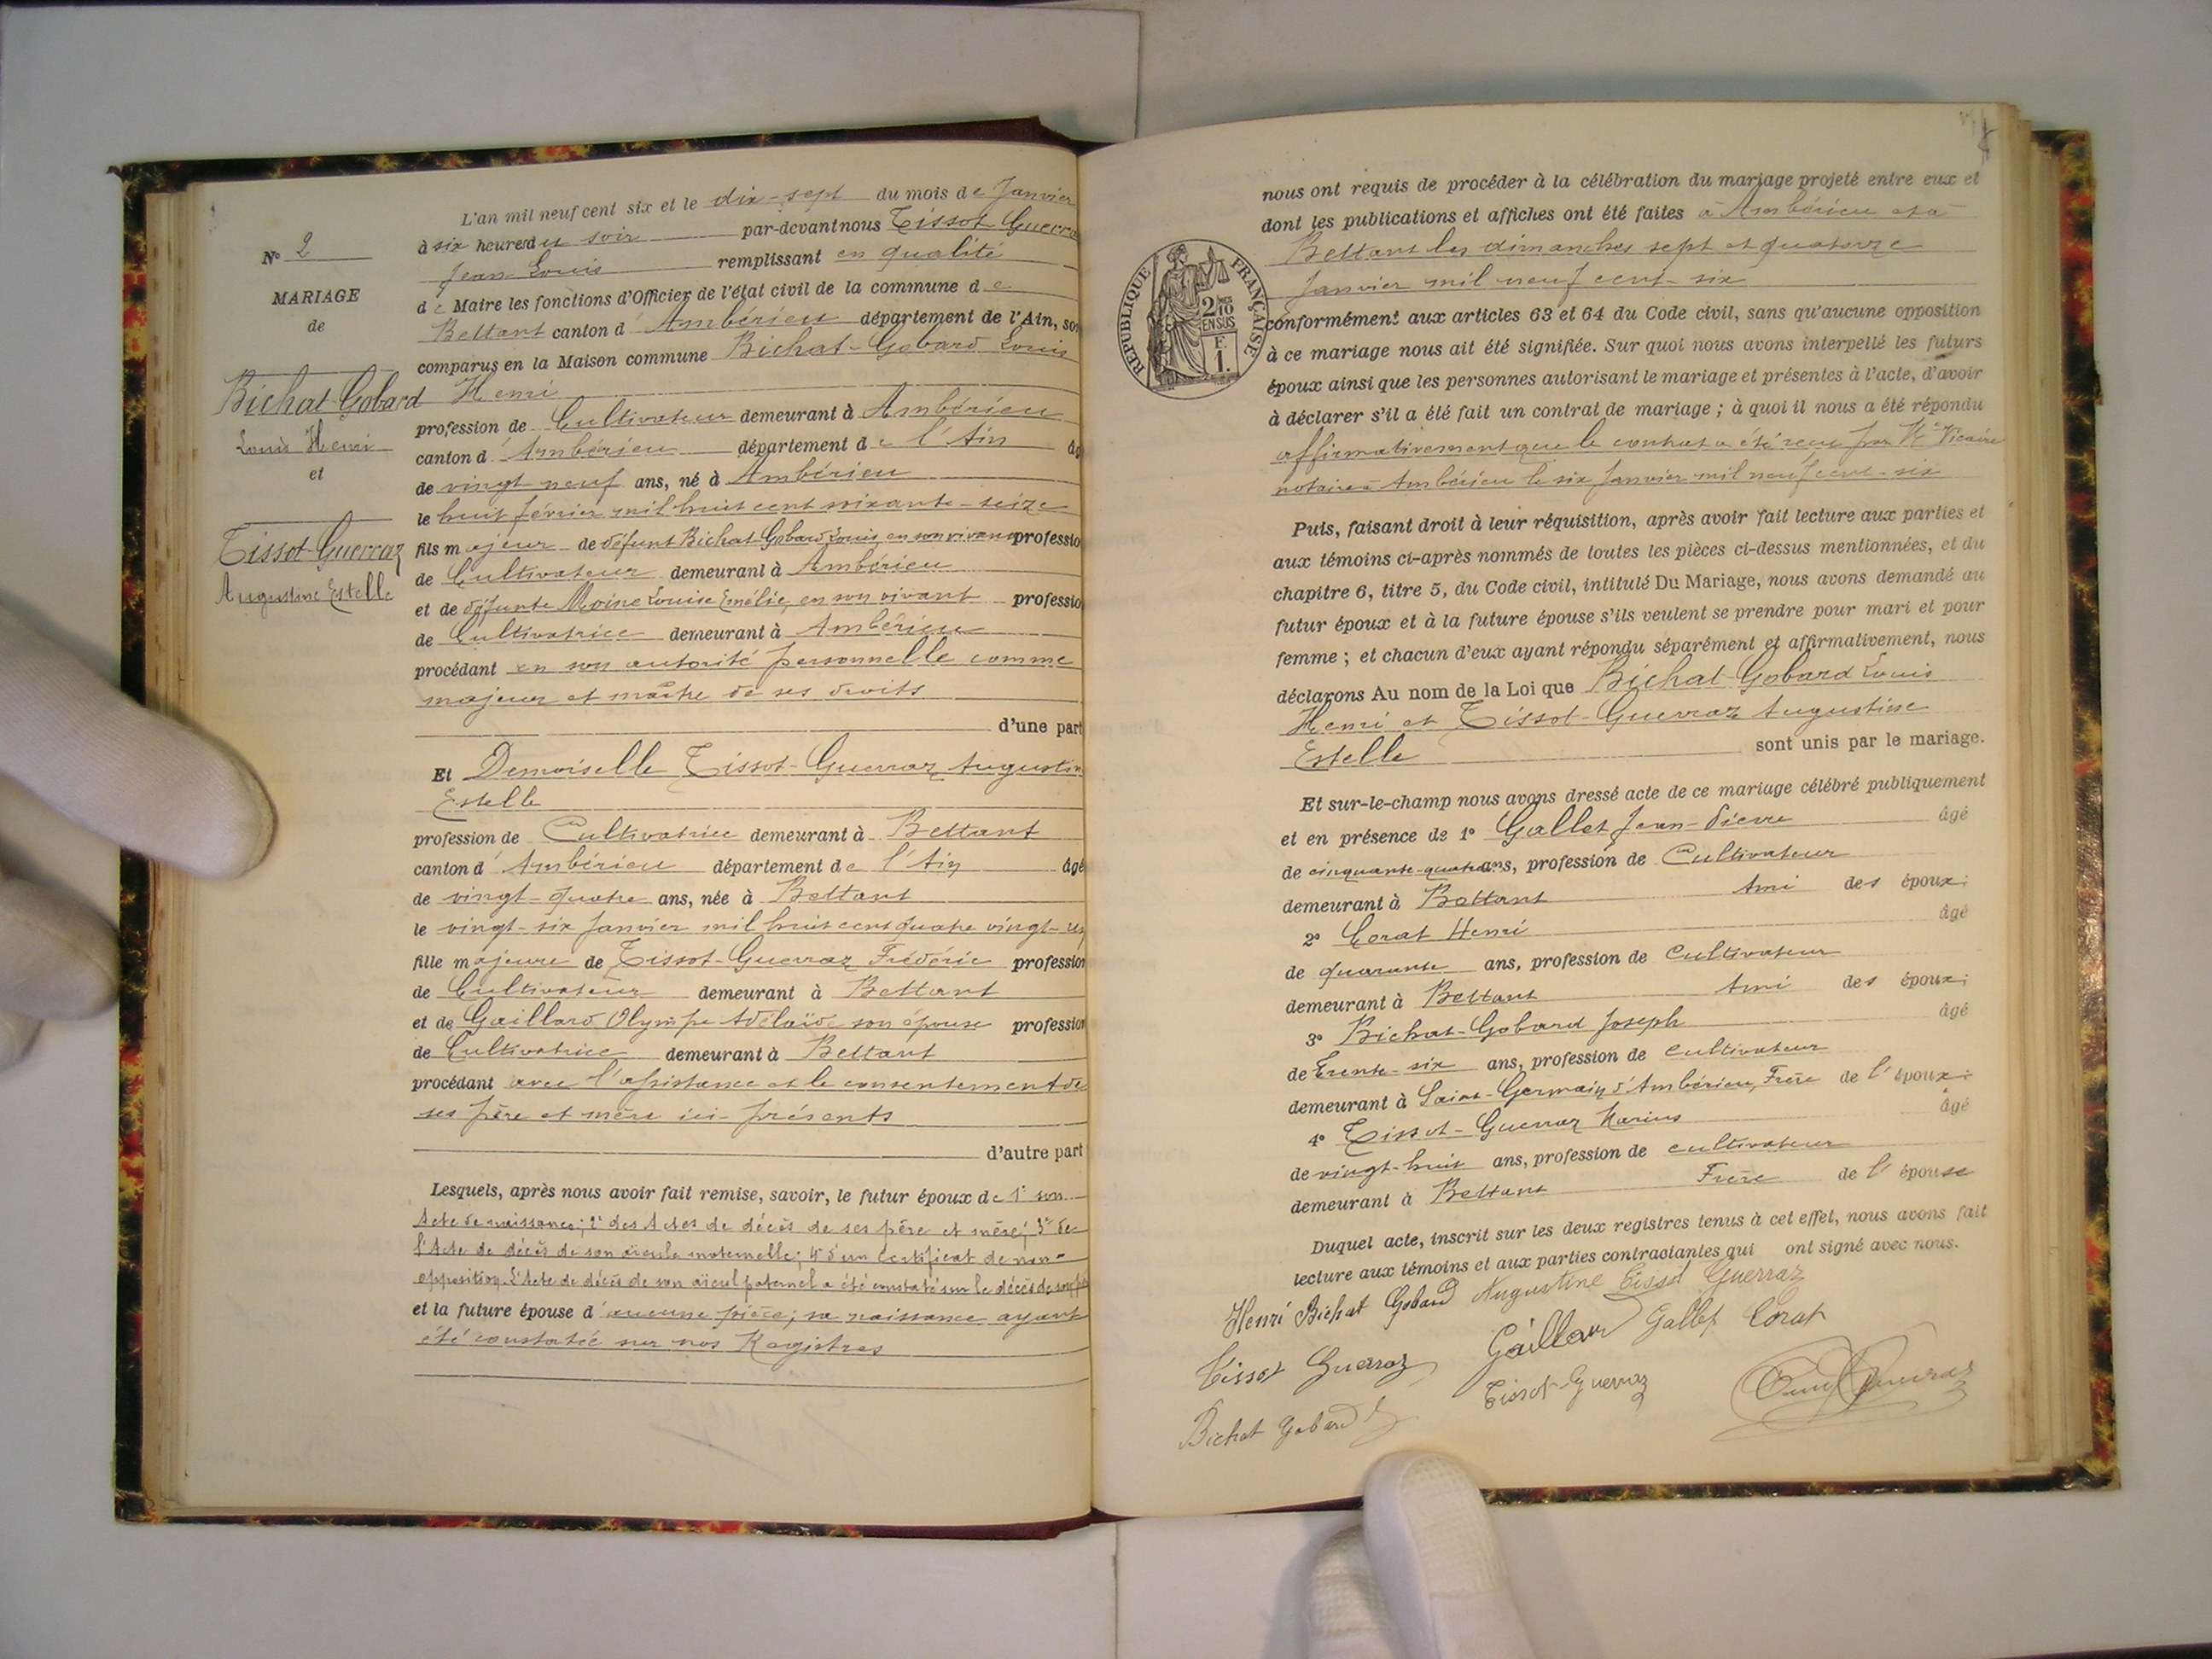 N° 2
MARIAGE
de
Bichat Gobard
Louis Henri
et
Tissot-Guerraz
Augustine Estelle
L'an mil neuf cent six et le dix-sept du mois de Janvier
à six heures du soir par-devant nous Tissot Guerra
Jean Louis remplissant en qualité
de Maire les fonctions d'Officier de l'état civil de la commune de
Bettant canton d' Ambérieu département de l'Ain, son
comparus en la Maison commune Bichat-Gobard Louis
Henri
profession de Cultivateur demeurant à Ambérieu
canton d' Ambérieu département de l'Ain âg
de vingt neuf ans, né à Ambérieu
le huit février mil huit cent soixante-seize
fils majeur de défunt Bichat-Gobard Louis en son vivant professio
de Cultivateur demeurant à Ambérieu
et de défunte Moine Louise Emélie, en son vivant professio
de Cultivatrice demeurant à Ambérieu
procédant en son autorité personnelle comme
majeur et maître de ses droits
d'une part
Et Demoiselle Tissot-Guerraz Augustin
Estelle
profession de Cultivatrice demeurant à Bettant
canton d' Ambérieu département de l'Ain âgé
de vingt-quatre ans, née à Bettant
le vingt-six Janvier mil huit cent quatre vingt-un
fille majeure de Tissot-Guerraz Frédéric profession
de Cultivateur demeurant à Bettant
et de Gaillard Olympe Adélaïde son épouse profession
de Cultivatrice demeurant à Bettant
procédant avec l'assistance et le consentement de
ses père et mère ici présents
d'autre part
Lesquels, après nous avoir fait remise, savoir, le futur époux de 1° son
Acte de naissance; 2° des Actes de décès de ses père et mère; 3° de
l'Acte de décès de son aïeule maternelle; 4° d'un Certificat de non-
opposition. L'Acte de décès de son aïeul paternel a été constaté sur le décès de son
et la future épouse d'aucune pièce; sa naissance ayant
été constatée sur nos Registres
nous ont requis de procéder à la célébration du mariage projeté entre eux et
dont les publications et affiches ont été faites à Ambérieu et à
Bettant les dimanches sept et quatorze
Janvier mil neuf cent-six
RÉPUBLIQUE FRANÇAISE
2/10
EN SUS
F.
1.
conformément aux articles 63 et 64 du Code civil, sans qu'aucune opposition
à ce mariage nous ait été signifiée. Sur quoi nous avons interpellé les futurs
époux ainsi que les personnes autorisant le mariage et présentes à l'acte, d'avoir
à déclarer s'il a été fait un contrat de mariage ; à quoi il nous a été répondu
affirmativement que le contrat a été reçu par Me Vicaire
notaire à Ambérieu le six Janvier mil neuf cent-six
Puis, faisant droit à leur réquisition, après avoir fait lecture aux parties et
aux témoins ci-après nommés de toutes les pièces ci-dessus mentionnées, et du
chapitre 6, titre 5, du Code civil, intitulé Du Mariage, nous avons demandé au
futur époux et à la future épouse s'ils veulent se prendre pour mari et pour
femme ; et chacun d'eux ayant répondu séparément et affirmativement, nous
déclarons Au nom de la Loi que Bichat-Gobard Louis
Henri et Tissot-Guerraz Augustine
Estelle sont unis par le mariage.
Et sur-le-champ nous avons dressé acte de ce mariage célébré publiquement
et en présence de 1° Gallet Jean-Pierre âgé
de cinquante-quatre ans, profession de Cultivateur
demeurant à Bettant Ami des époux;
2° Corat Henri âgé
de quarante ans, profession de Cultivateur
demeurant à Bettant Ami des époux;
3° Bichat-Gobard Joseph âgé
de trente-six ans, profession de cultivateur
demeurant à Saint-Germain d'Ambérieu, Frère de l'époux;
4° Tissot-Guerraz Marius âgé
de vingt-huit ans, profession de cultivateur
demeurant à Bettant Frère de l'épouse
Duquel acte, inscrit sur les deux registres tenus à cet effet, nous avons fait
lecture aux témoins et aux parties contractantes qui ont signé avec nous.
Henri Bichat Gobard Augustine Tissot Guerraz
Tissot Guerraz Gaillard Gallet Corat
Bichat Gobard Tissot-Guerraz